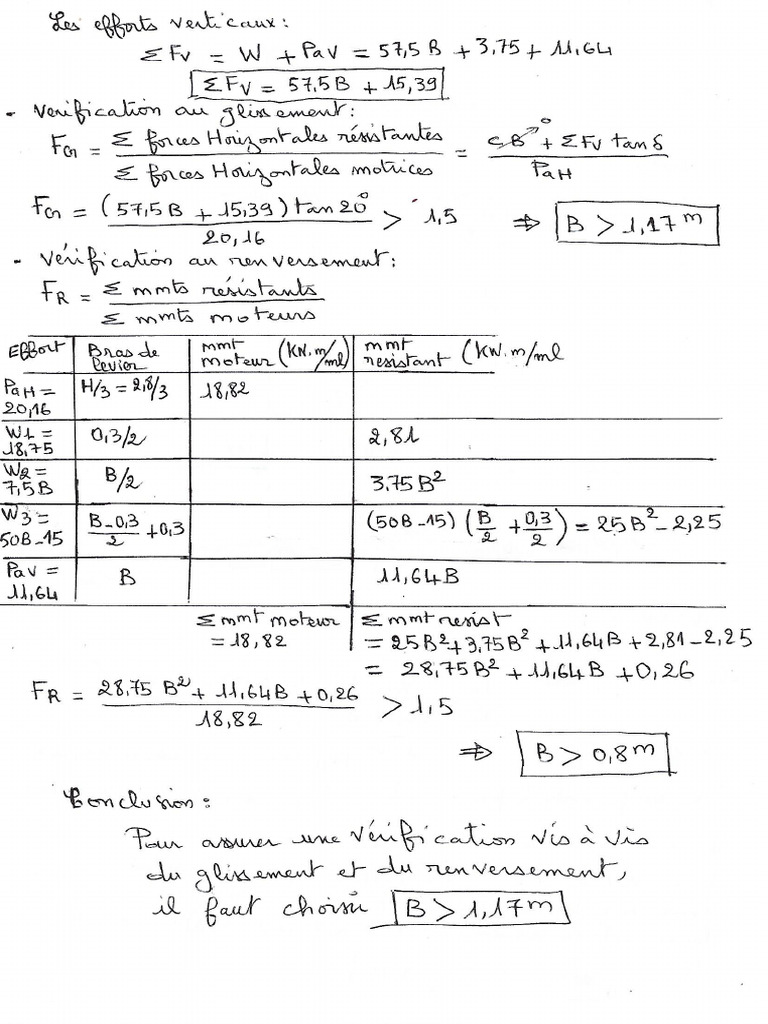 Les efforts verticaux:
ΣFv = W + Pav = 57,5B + 3,75 + 11,64
ΣFv = 57,5B + 15,39
- verification au glissement:
FG = Σ forces Horizontales résistantes / Σ forces Horizontales motrices = (cB→0 + ΣFv tan δ) / PaH
FG = (57,5B + 15,39) tan 20° / 20,16 > 1,5 ⇒ B > 1,17 m
- vérification au renversement:
FR = Σ mmts résistants / Σ mmts moteurs
Effort | Bras de levier | mmt moteur (KN.m/ml) | mmt resistant (KN.m/ml
PaH = 20,16 | H/3 = 2,8/3 | 18,82
W1 = 18,75 | 0,3/2 | 2,81
W2 = 7,5B | B/2 | 3.75B²
W3 = 50B-15 | B-0,3/2 + 0,3 | (50B-15) (B/2 + 0,3/2) = 25B² - 2,25
Pav = 11,64 | B | 11,64B
Σ mmt moteur = 18,82 | Σ mmt resist
= 25B² + 3,75B² + 11,64B + 2,81 - 2,25
= 28,75B² + 11,64B + 0,26
FR = 28,75 B² + 11,64B + 0,26 / 18,82 > 1,5
⇒ B > 0,8 m
Conclusion:
Pour assurer une vérification vis à vis
du glissement et du renversement,
il faut choisir B > 1,17 m